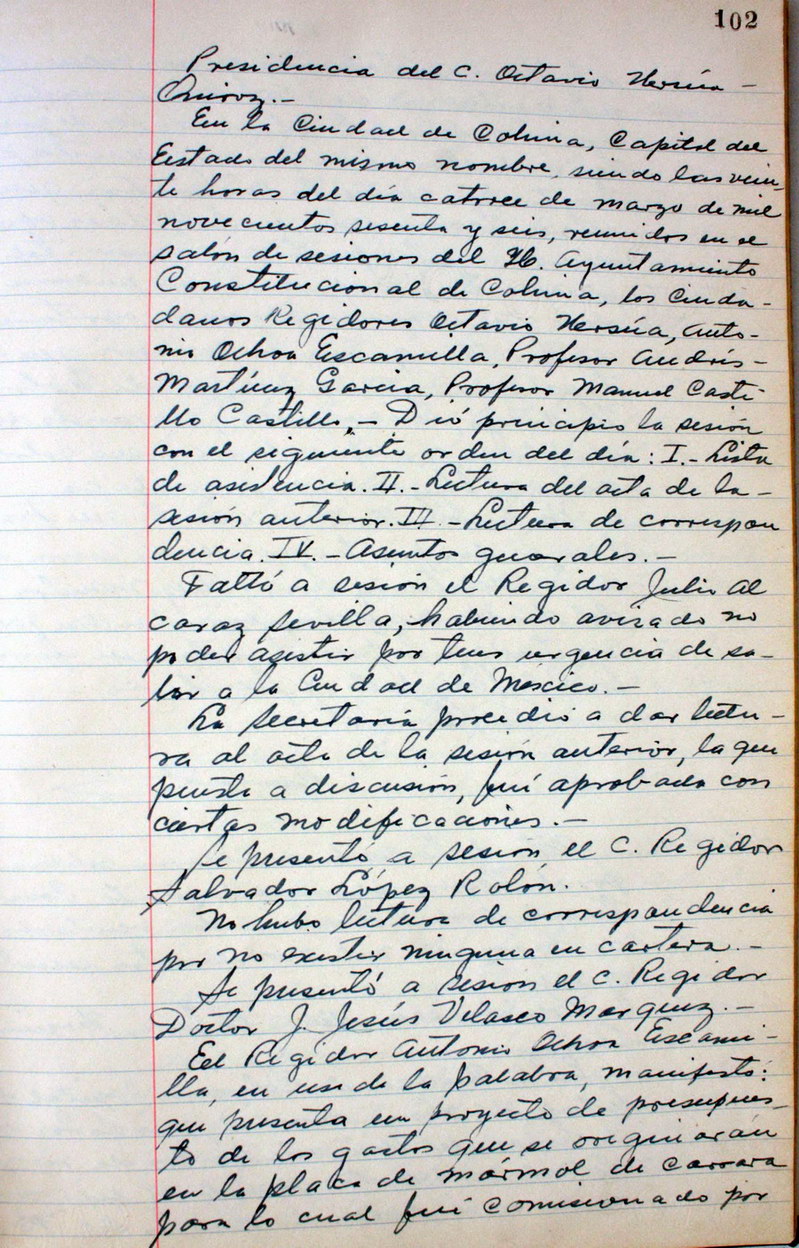 102
Presidencia del C. Octavio Hersúa -
Quiroz.-
En la Ciudad de Colima, Capital del
Estado del mismo nombre, siendo las vein-
te horas del día catorce de marzo de mil
novecientos sesenta y seis, reunidos en el
salón de sesiones del H. Ayuntamiento
Constitucional de Colima, los Ciuda-
danos Regidores Octavio Hersúa, Anto-
nio Ochoa Escamilla, Profesor Andrés-
Martínez García, Profesor Manuel Casti-
llo Castillo.- Dió principio la sesión
con el siguiente orden del día: I.- Lista
de asistencia. II.- Lectura del acta de la-
sesión anterior. III.- Lectura de correspon
dencia. IV.- Asuntos generales.-
Faltó a sesión el Regidor Julio Al
caraz Sevilla, habiendo avisado no
poder asistir por tener urgencia de sa-
lir a la Ciudad de México.-
La Secretaría procedió a dar lectu-
ra al acta de la sesión anterior, la que
puesta a discusión, fué aprobada con
ciertas modificaciones.-
Se presentó a sesión el C. Regidor
Salvador López Rolón.
No hubo lectura de correspondencia
por no existir ninguna en cartera.-
Se presentó a sesión el C. Regidor
Doctor J. Jesús Velasco Marquez.-
El Regidor Antonio Ochoa Escami-
lla, en uso de la palabra, manifestó:
que presenta un proyecto de presupues-
to de los gastos que se originarán
en la placa de mármol de carrara
para lo cual fué comisionado por